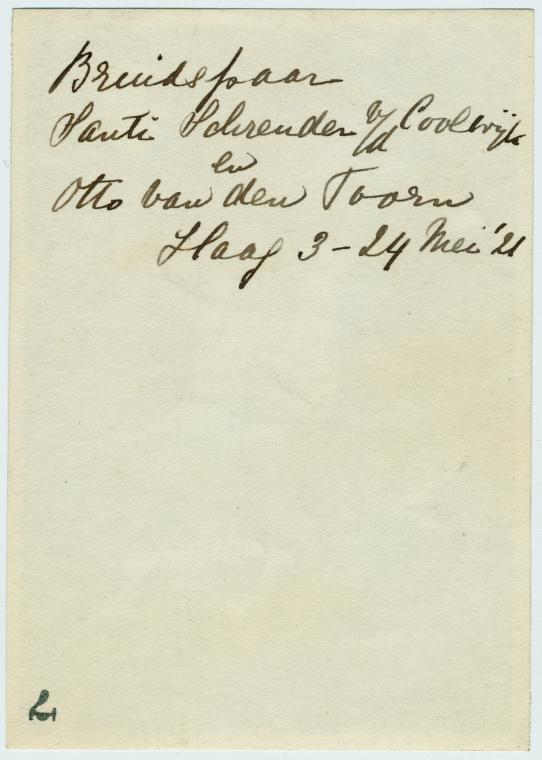 Bruidspaar
Santi Schreuder v/d Coolwijk
en
Otto van den Toorn
Haag 3 - 24 Mei '21